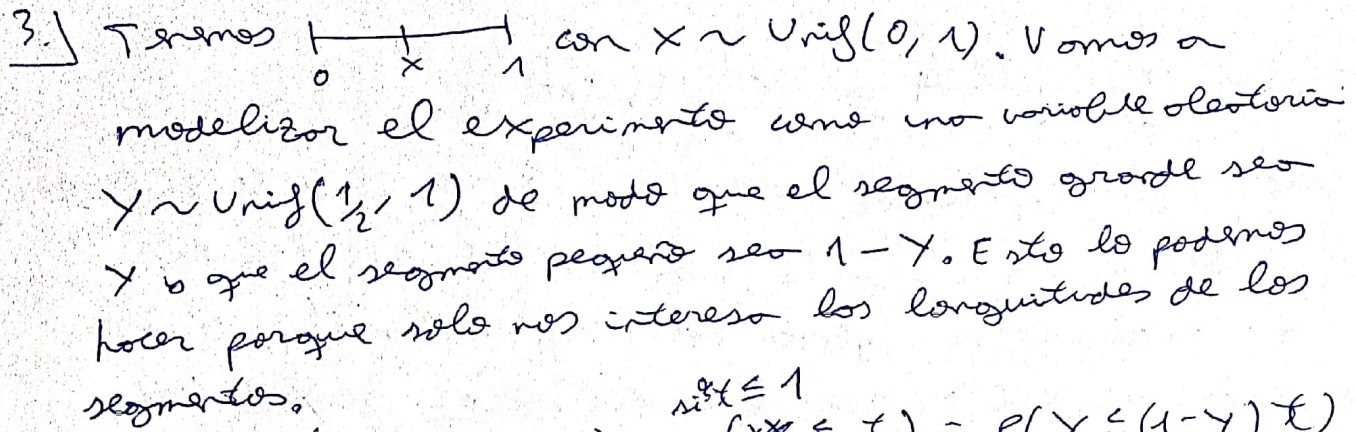 3.] Tenemos 0 x 1 con X ~ Unif(0, 1). Vamos a
modelizar el experimento como una variable aleatoria
Y ~ Unif(1/2, 1) de modo que el segmento grande sea
Y y que el segmento pequeño sea 1 - Y. Esto lo podemos
hacer porque solo nos interesa las longuitudes de los
segmentos.
≤ 1
≤ t) = P(Y ≤ (1-Y)t)